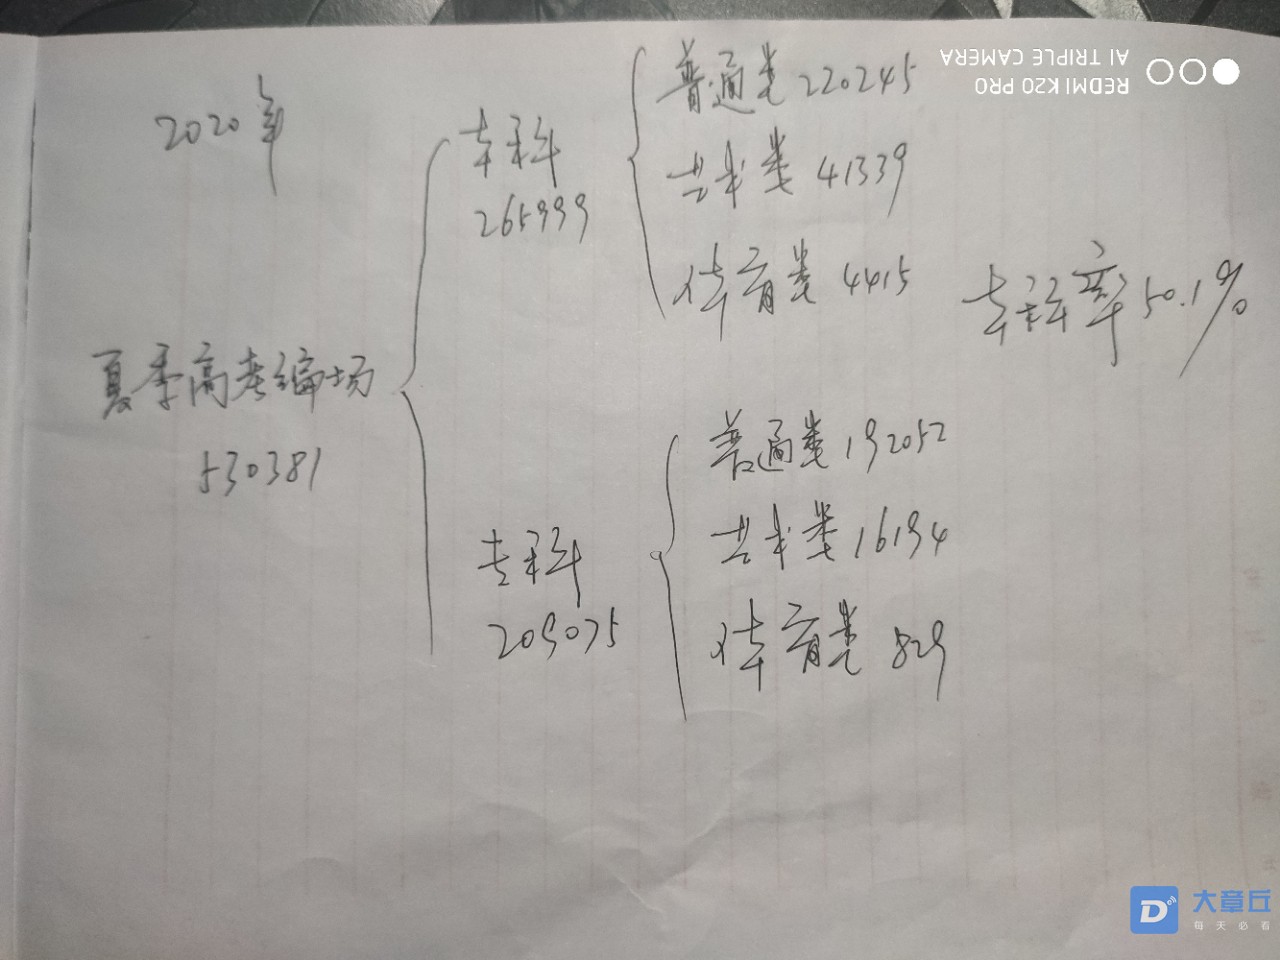 2020年
夏季高考编场
530381
本科
265999
普通类 220245
艺术类 41339
体育类 4415
本科率 50.1%
专科
209075
普通类 192052
艺术类 16194
体育类 829
REDMI K20 PRO
AI TRIPLE CAMERA
大章丘
每天必看